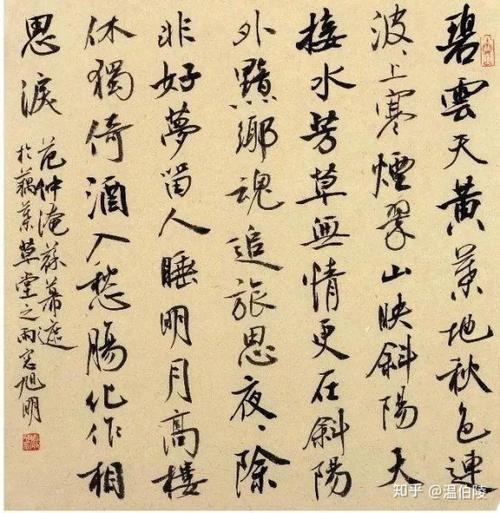 碧雲天黄葉地秋色連
波、上寒煙翠山映斜陽天
接水芳草無情更在斜陽
外黯鄉魂追旅思夜、除
非好夢留人睡明月高樓
休獨倚酒入愁腸化作相
思淚
范仲淹蘇幕遮
於藕葉草堂之雨窓旭明
知乎 @温伯陵